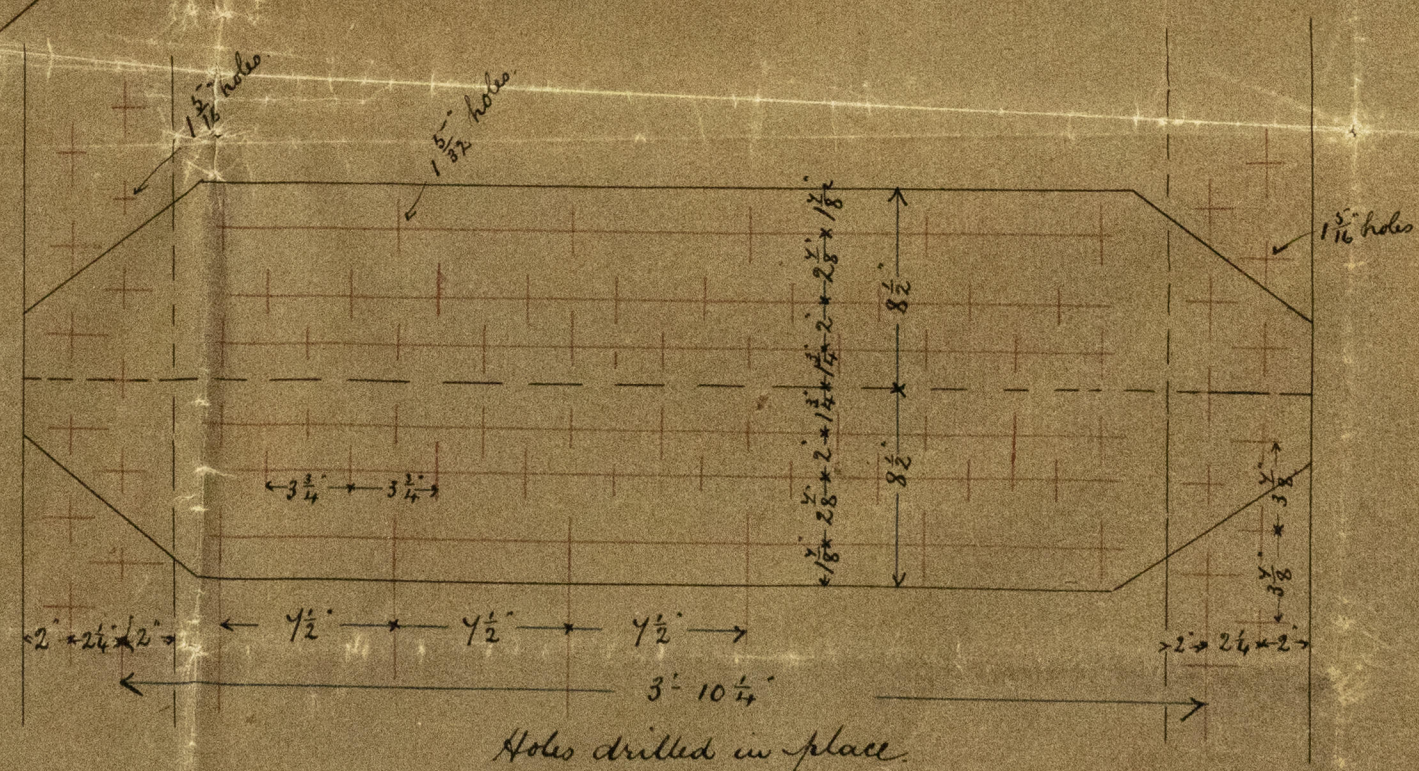 1 5/16" holes.
1 5/32" holes.
1 5/16" holes
1 7/8"
2 7/8"
2"
1 3/4"
1 3/4"
2"
2 7/8"
1 7/8"
8 1/2"
8 1/2"
3 3/4" 3 3/4"
3 7/8"
3 7/8"
2" 2 1/4" 2"
7 1/2" 7 1/2" 7 1/2"
2" 2 1/4" 2"
3'- 10 1/4"
Holes drilled in place.